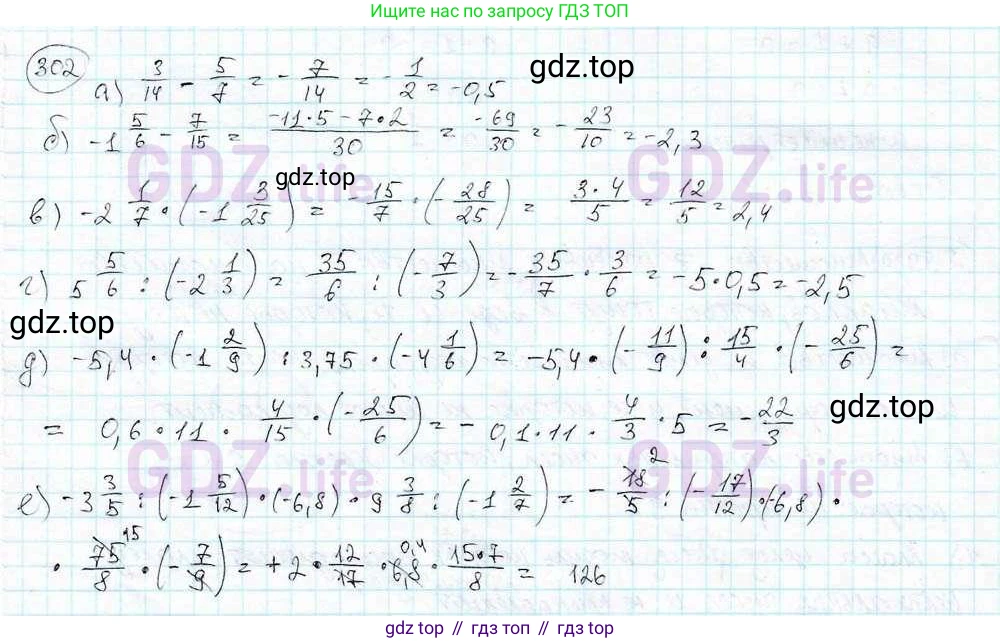 Ищите по запросу ГДЗ ТОП
302
а) 3/14 - 5/7 = - 7/14 = - 1/2 = -0,5
gdz.top
б) -1 5/6 - 7/15 = (-11·5 - 7·2)/30 = -69/30 = - 23/10 = -2,3
GDZ.life GDZ.life
gdz.top
в) -2 1/7 · (-1 3/25) = - 15/7 · (- 28/25) = 3·4/5 = 12/5 = 2,4
г) 5 5/6 : (-2 1/3) = 35/6 : (- 7/3) = - 35/7 · 3/6 = -5·0,5 = -2,5
gdz.top
д) -5,4 · (-1 2/9) : 3,75 · (-4 1/6) = -5,4 · (- 11/9) : 15/4 · (- 25/6) =
= 0,6·11 · 4/15 · (- 25/6) = - 0,1·11 · 4/3 · 5 = - 22/3
gdz.top
GDZ.life GDZ.life
е) -3 3/5 : (-1 5/12) · (-6,8) · 9 3/8 : (-1 2/7) = - 18/5 2 : (- 17/12) · (-6,8) ·
· 75/8 15 · (- 7/9) = + 2 · 12/17 · 6,8 0,4 · 15·7/8 = 126
gdz.top // gdz.top // gdz.top